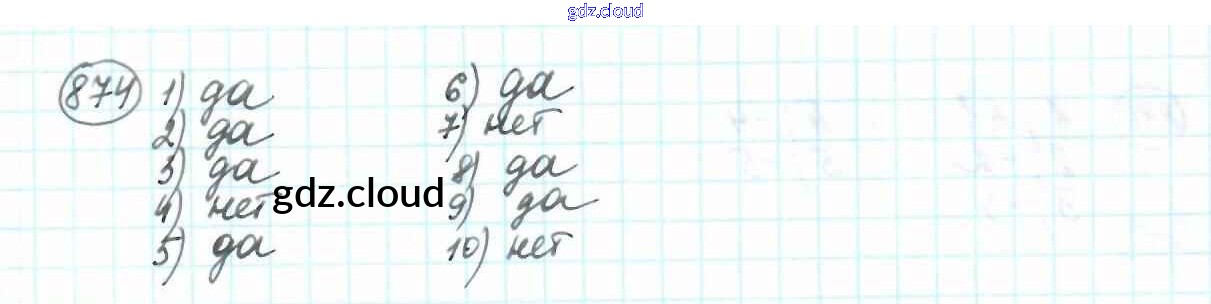 gdz.cloud
874 1) да 6) да
2) да 7) нет
3) да 8) да
4) нет gdz.cloud 9) да
5) да 10) нет